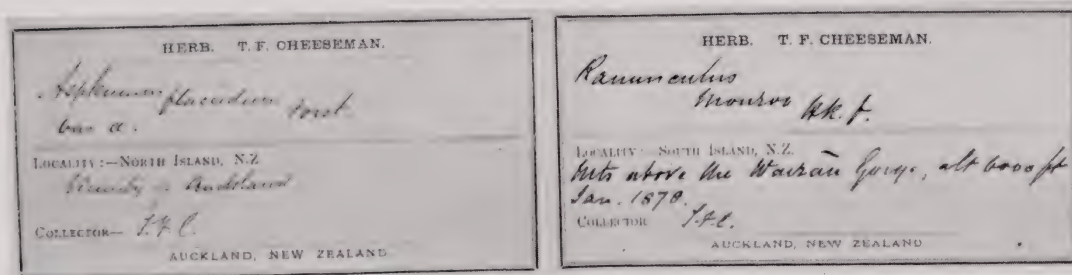 HERB. T. F. CHEESEMAN.
Asplenium flaccidum Forst.
var a.
LOCALITY :—NORTH ISLAND, N.Z.
Vicinity of Auckland
COLLECTOR— T.F.C.
AUCKLAND, NEW ZEALAND
HERB. T. F. CHEESEMAN.
Ranunculus
Monroi Hk. f.
LOCALITY :—SOUTH ISLAND, N.Z.
Mts above the Wairau Gorge, alt 6000 ft
Jan. 1878.
COLLECTOR T.F.C.
AUCKLAND, NEW ZEALAND